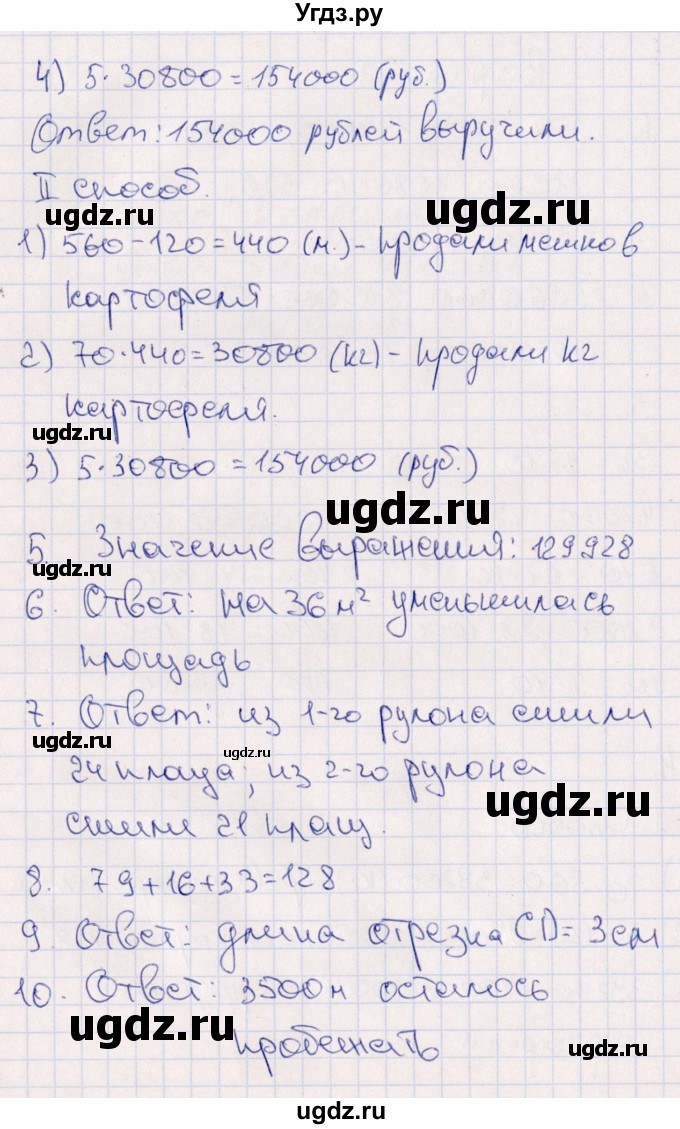 Угдз.ру
4) 5·30800=154000 (руб.)
Ответ: 154000 рублей выручили.
II способ.
ugdz.ru
ugdz.ru
1) 560-120=440 (м.)- продали мешков
картофеля
2) 70·440=30800 (кг)- продали кг
картофеля.
ugdz.ru
3) 5·30800=154000 (руб.)
ugdz.ru
5. Значение выражения: 129928
ugdz.ru
6. Ответ: на 36 м² уменьшилась
площадь
7. Ответ: из 1-го рулона сшили
ugdz.ru
ugdz.ru
24 плаща; из 2-го рулона
ugdz.ru
сшили 21 плащ.
8. 79+16+33=128
9. Ответ: длина отрезка CD= 3см
10. Ответ: 3500м осталось
ugdz.ru
пробежать
ugdz.ru
ugdz.ru